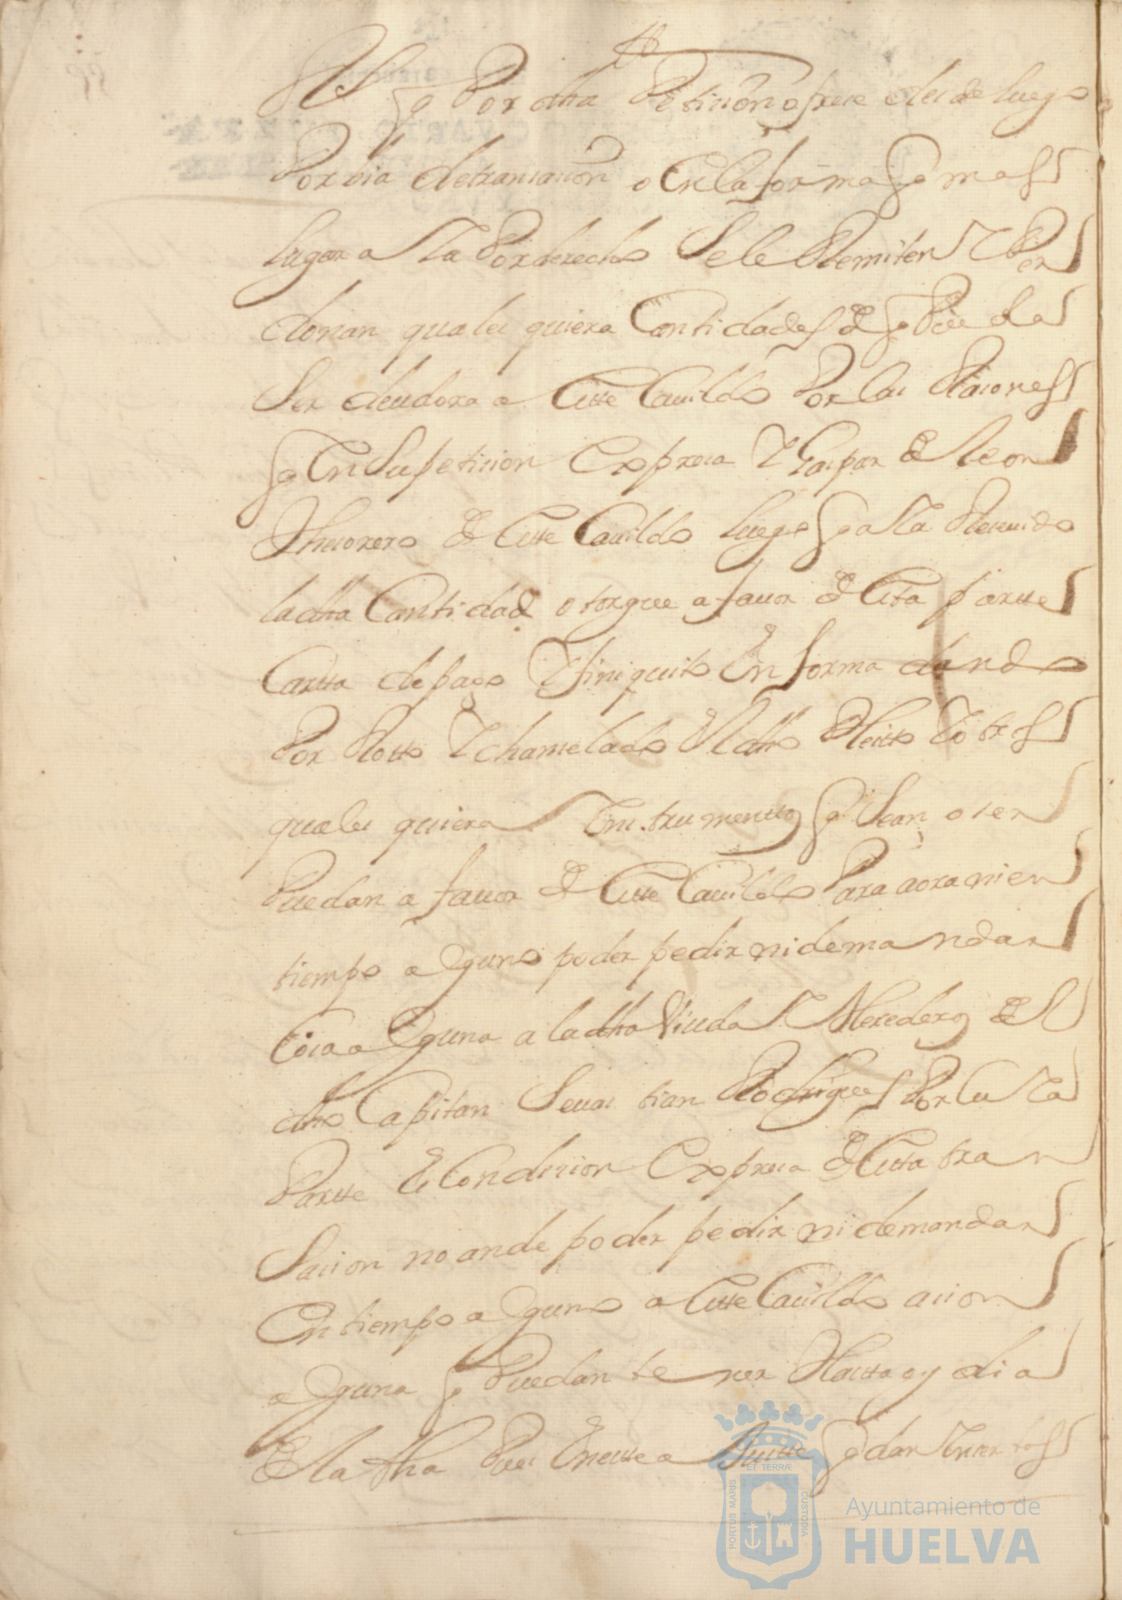 q̃ Por dha Peticion ofrece desde luego
Por via de transacion o en la forma q̃ mas
lugar a Ya Por derecho Se le Remiten Y Per
donan quales quiera Cantidades de q̃ Pueda
Ser deudora a Este Cauildo Por las Raçones
q̃ En Su peticion Expresa Y Gaspar de leon
Thesorero de Este Cauildo luego q̃ aYa Reseuido
la dha Cantidad otorgue a fauor de Esta partte
Cartta de pago Y finiquito En forma dando
Por Rotto Y chanselado El dho Pleitto Y otros
quales quiera Instrumenttos q̃ Sean o ser
Puedan a fauor de Este Cauildo Para aora ni en
tiempo alguno poder pedir ni demandar
Cosa alguna a la dha Viuda Y Herederos del
dho Capitan Seuastian Rodrigues Por cuYa
Partte Es Condicion Expresa de Esta tran
Sacion no an de poder pedir ni demandar
En tiempo alguno a Este Cauildo acion
alguna q̃ Puedan tener Hasta oy dia
de la fha Pues En este a q̃dan
Ayuntamiento de
HUELVA
PORTUS MARIS
ET TERRÆ
CUSTODIA